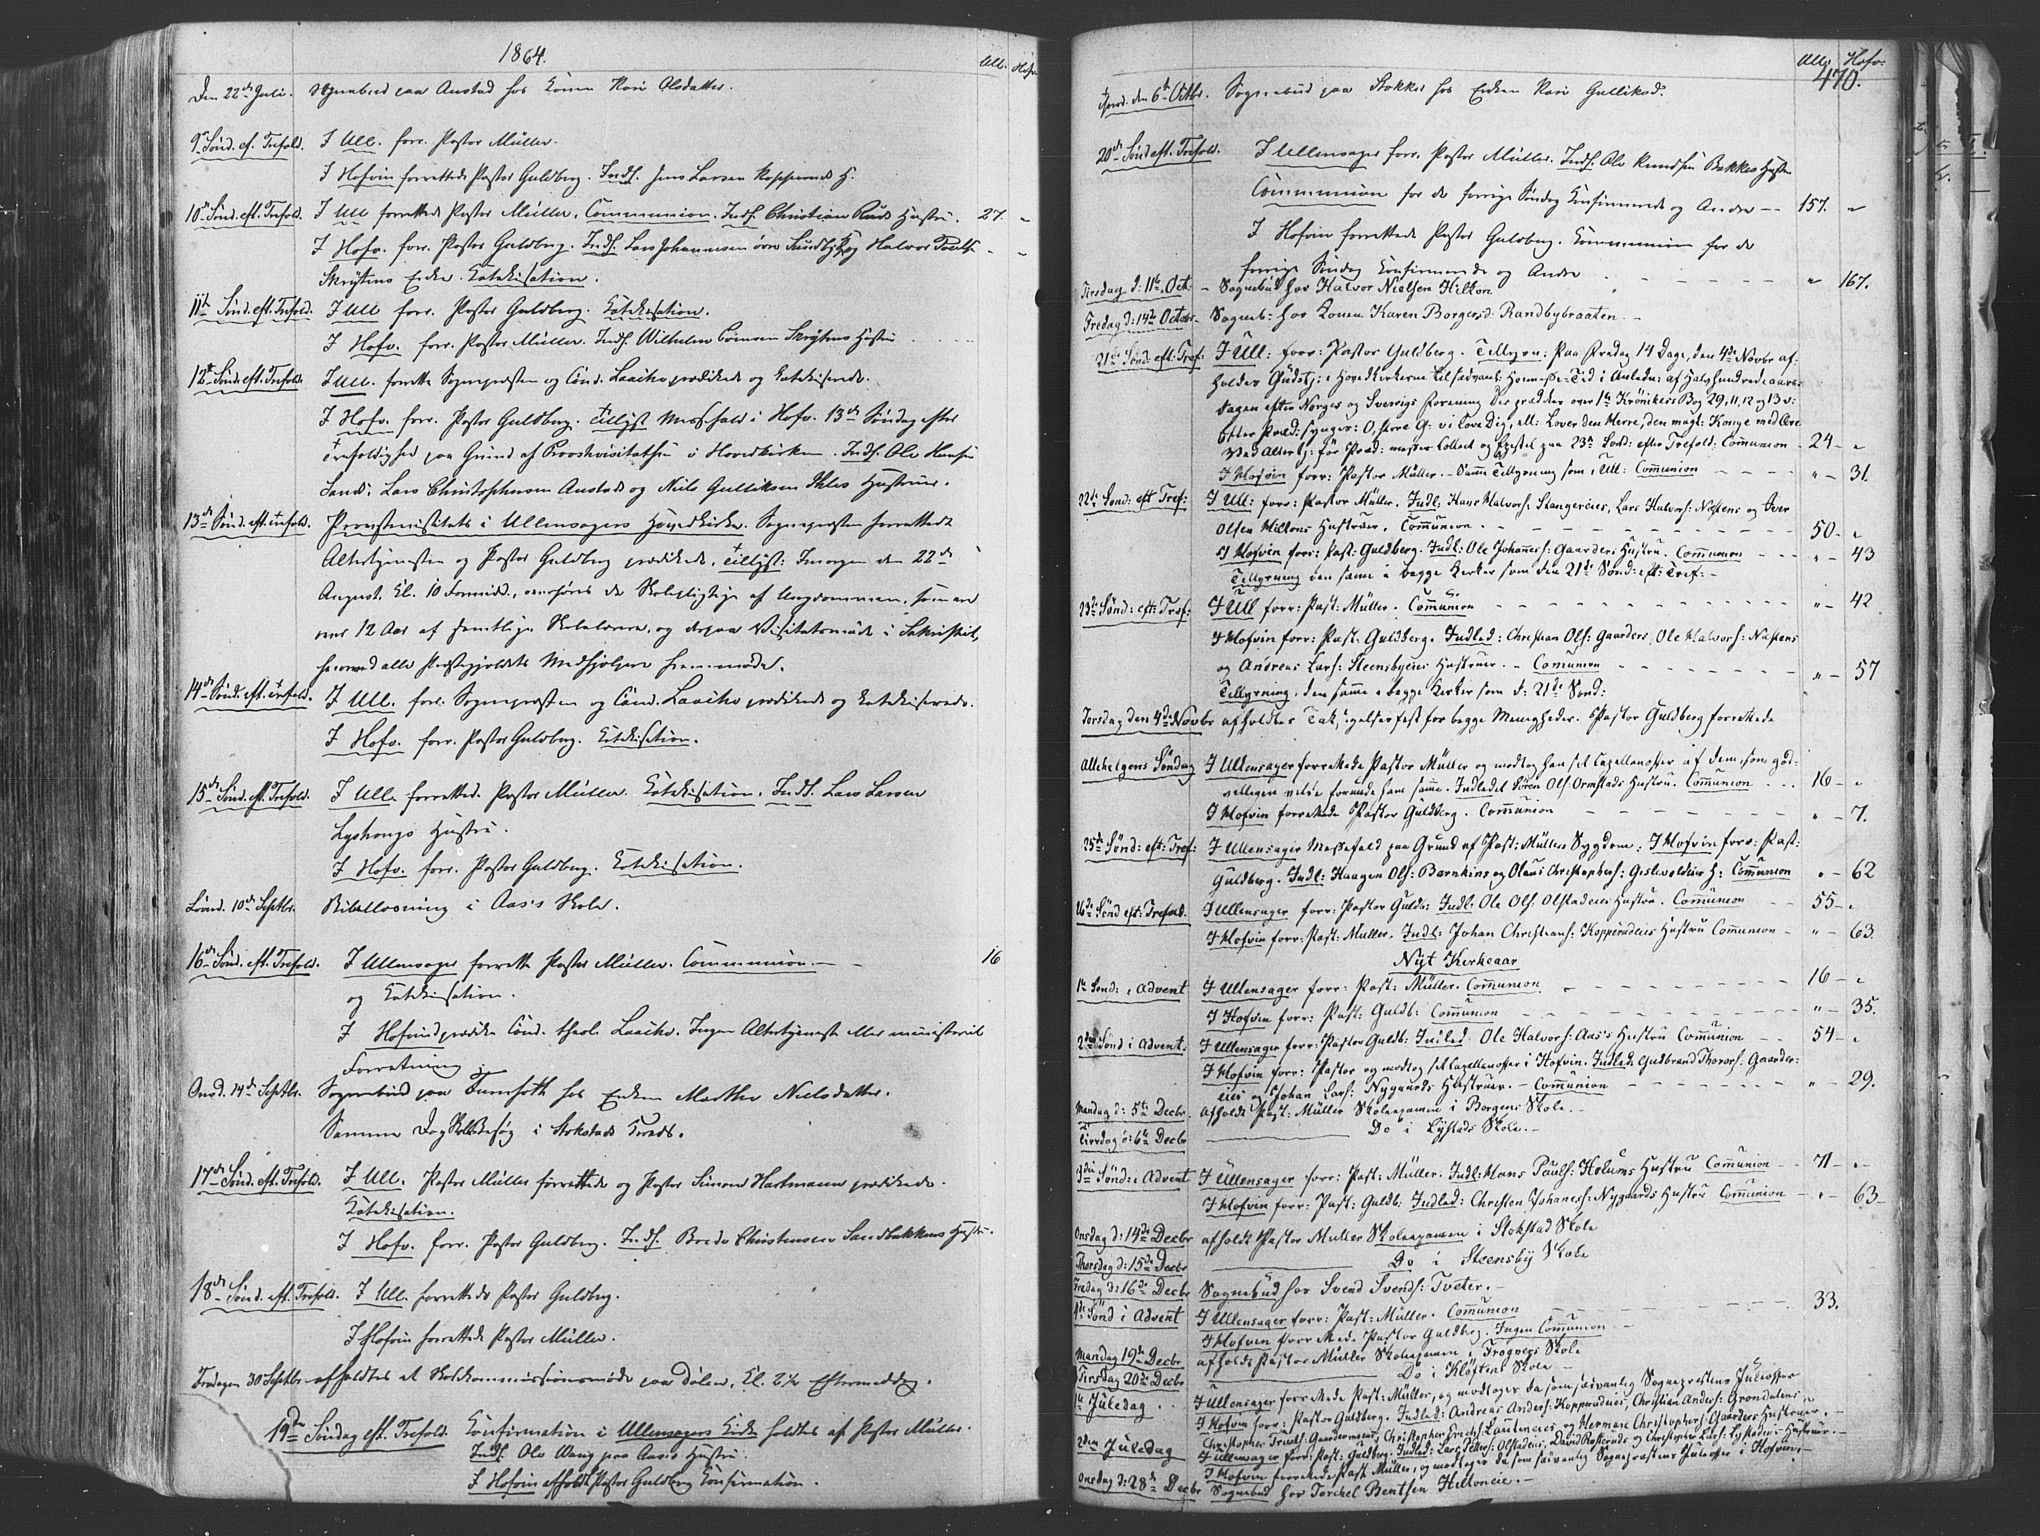 1864.
Ull. Hofv.
Den 22de Juli. Sognebud paa Austad hos Konen Kari Olsdatter.
9de Sönd. ef. Trefold. I Ull. forr. Pastor Müller.
I Hofvin forrettede Pastor Guldberg. Indl. Jens Larsen Kopperuds H.
10de Sönd. eft. Trefold. I Ull forrettede Pastor Müller. Communion. Indl. Christian Ruds Hustru. 27. "
I Hofv. forr. Pastor Guldberg. Indl. Lars Johannesen övre Sundby og Halvor
Enke. Katekisation.
11te Sönd. eft. Trefold. I Ull forr. Pastor Guldberg. Katekisation.
I Hofv. forr. Pastor Müller. Indl. Wilhelm Hustru
12te Sönd. eft. Trefold. I Ull. forrette Sognepræsten og Cand. Laache prædikede og katekiserede.
I Hofv. forr. Pastor Guldberg. Tillyst Messefald i Hofv. 13de Söndag efter
Trefoldighed paa Grund af Provstevisitatsen i Hovedkirken. Indl. Ole Hansen
Lars Christophersen Austad og Niels Gulliksen Hustruer.
13de Sönd. eft. Trefold. Provstevisitats i Ullensagers Hovedkirke. Sognepræsten forrettede
Altertjenesten og Pastor Guldberg prædikede. Tillyst: Imorgen den 22de
August, Kl. 10 Formidd., overhöres de Skolepligtige af Ungdommen, som ere
over 12 Aar af samtlige Skolelærere, og derpaa Visitatsmöde i Sakristiet,
hvorved alle Præstegjeldets Medhjelpere fremmöde.
14de Sönd. eft. Trefold. I Ull. forr. Sognepræsten og Cand. Laache prædikede og katekiserede.
I Hofv. forr. Pastor Guldberg. Katekisation.
15de Sönd. eft. Trefold. I Ull. forrettede Pastor Müller. Katekisation. Indl. Lars Larsen
Hustru.
I Hofv. forr. Pastor Guldberg. Katekisation.
Lörd. 10de Septbr. Bibellæsning i Aas's Skole.
16de Sönd. eft. Trefold. I Ullensager forrette Pastor Müller. Communion. 16
og Katekisation.
I Hofvin prædike Cand. theol. Laache. Ingen Altertjeneste eller ministeriel
Forretning
Onsd. 14de Septbr. Sognebud paa hos Enken Marthe Nielsdatter.
Samme Dag Skolebesög i Stokstads Kreds.
17de Sönd. eft. Trefold. I Ull. Pastor Müller forrettede og Pastor Simon Hartmann prædikede.
Katekisation.
I Hofv. forr. Pastor Guldberg. Indl. Brede Christensen Sandbakkens Hustru.
18de Sönd. eft. Trefold. I Ull. forrettede Pastor Guldberg.
I Hofvin forrettede Pastor Müller.
Fredagen 30 Septbr afholdtes et Skolekommissionsmöde paa Dölen, Kl. 2½ Eftermiddag.
19de Söndag eft. Trefold. Confirmation i Ullensagers Kirke holdtes af Pastor Müller.
Indl. Ole Wang paa Aas's Hustru.
I Hofvin afholdt Pastor Guldberg Confirmation.
Ull. Hofv.
470.
Torsd. den 6te Octbr. Sognebud paa Stokker hos Enken Kari Gulliksd.
20de Sönd. eft. Trefold. I Ullensager forr. Pastor Müller. Indl. Ole Knudsen Bakkes Hustru
Communion for de forrige Söndag Konfirmerede og Andre — 157. "
I Hofvin forrettede Pastor Guldberg. Kommunion for de
forrige Söndag Konfirmerede og Andre " 167.
Tirsdag d: 11te Oct. – Sognebud hos Halvor Nielsen Hilton
Fredag d: 14de Octbr – Sogneb: hos Konen Karen Borgersd: Randbybraaten. –
21de Sönd: eft: Tref: I Ull: forr: Pastor Guldberg. Tillysn: Paa Fredag 14 Dage, den 4de Novbr af-
holdes Gudstj: i Hovedkirkerne til sædvanl: Höimesse-Tid i Anledn: af Halvhundredeaars-
dagen efter Norges og Sverigs Forening Der prædkes over 1ste Krönikers Bog 29, 11, 12 og 13 v:
Efter Præd: synges: O, store G: vi love Dig, ell: Lover den Herre, den mægt: Konge med Ære
Ved Altertj: för Præd: messes Collect og Epistel paa 23de Sönd: efter Trefold: Communion – 24 – "
I Hofvin forr: Pastor Müller. – Samme Tillysning som i Ull: Communion " – 31.
22de Sönd: eft Tref: I Ull: forr: Pastor Müller. Indl: Hans Halvors: Stangereies, Lars Halvors: Næstens og Iver
Olsen Hiltons Hustruer. Communion. 50 – "
I Hofvin forr: Past: Guldberg. Indl: Ole Johannes: Gaarders Hustru. Communion " – 43
Tillysning den samme i begge Kirker som den 21de Sönd: eft: Tref: –
23de Sönd: eft: Tref: I Ull forr: Past: Müller. Communion " – 42
I Hofvin forr: Past. Guldberg. Indled: Christian Ols: Gaarders, Ole Halvors: Næstens
og Andreas Lars: Steensbyeies Hustruer. – Comunion " – 57
Tillysning, den samme i begge Kirker som d: 21de Sönd:
Torsdag den 4de Novbr afholdtes Taksigelsesfest for begge Menigheder. Pastor Guldberg forrettede
Allehelgens Söndag I Ullensager forrettede Pastor Müller og modtog han sit Capellanoffer af dem, som god-
velligen vilde forunde ham samme. Indledet Sören Ols: Ormstads Hustru. Communion 16 – "
I Hofvin forrettede Pastor Guldberg. Communion " – 7.
25de Sönd: eft: Tref: I Ullensager Messefald paa Grund af Past: Müllers Sygdom. I Hofvin forr: Past:
Guldberg. Indl: Haagen Ols: Barnkins og Olaus Christophers: Gislevoldeies H: Communion " – 62
26de Sönd eft: Trefold. I Ullensager forr: Pastor Guldb: Indl: Ole Ols: Olstadeies Hustru. Communion 55 – "
I Hofvin forr: Past: Müller. Indl: Johan Christians: Kopperudeies Hustru Communion – " – 63
Nyt Kirkeaar
1ste Sönd: i Advent I Ullensager forr: Past: Müller. Communion 16 – "
I Hofvin forr: Past: Guldb: Communion " – 35.
2den Sönd i Advent. I Ullensager forr: Pastor Guldb. Indled: Ole Halvors: Aas's Hustru Communion 54 – "
I Hofvin forr: Pastor og modtog sit Capellanoffer i Hofvin. Indled: Guldbrand Thorers: Gaarder-
eies og Johan Lars: Nygaards Hustruer. – Communion " – 29.
Mandag d: 5te Decbr. afholdt Past: Müller Skoleexamen i Borgens Skole. –
Tirsdag d: 6te Decbr Do i Lystads Skole. –
3die Sönd: i Advent I Ullensager forr: Past: Müller. Indl: Hans Pauls: Holums Hustru Communion 71 – "
I Hofvin forr: Past: Guldb. Indled: Christen Johannes: Nygaards Hustru Communion – " – 63 –
Onsdag d: 14de Decbr afholdt Pastor Müller Skoleexamen i Stokstad Skole
Thorsdag d: 15de Decbr Do i Steensby Skole
Fredag d: 16de Decbr Sognebud hos Svend Svends: Tveter. –
4de Sönd i Advent I Ullensager forr: Past: Müller. Communion 33.
I Hofvin forrettede Pastor Guldberg. Ingen Communion –
Mandag 19de Decbr afholdt Pastor Müller Skoleexamen i Frogners Skole
Tirsdag 20de Decbr Do i Klöftens Skole –
1ste Juledag . . I Ullensager forrettede Past: Müller, og modtoges da som sædvanlig Sognepræstens Juleoffer
I Hofvin forr: Pastor Guldberg. Indled: Andreas Anders: Kopperudeies, Christian Anders: Gröndalens
Christopher Gaardermoens, Christopher Erichs: og Herman Christophers: Gaarders Hustruer. –
2den Juledag I Ullensager forr: Past: Guldberg. Indled: Lars Peders: Olstadeies, David Rosterud og Christopher Lars: Lystadeies Hustruer. –
I Hofvin forrettede Past Müller, og modtoges da som sædvanlig Sognepræstens Juleoffer i Hofvin. –
Onsdag d: 28de Decbr Sognebud hos Torchel Bentsen Hiltoneie. –